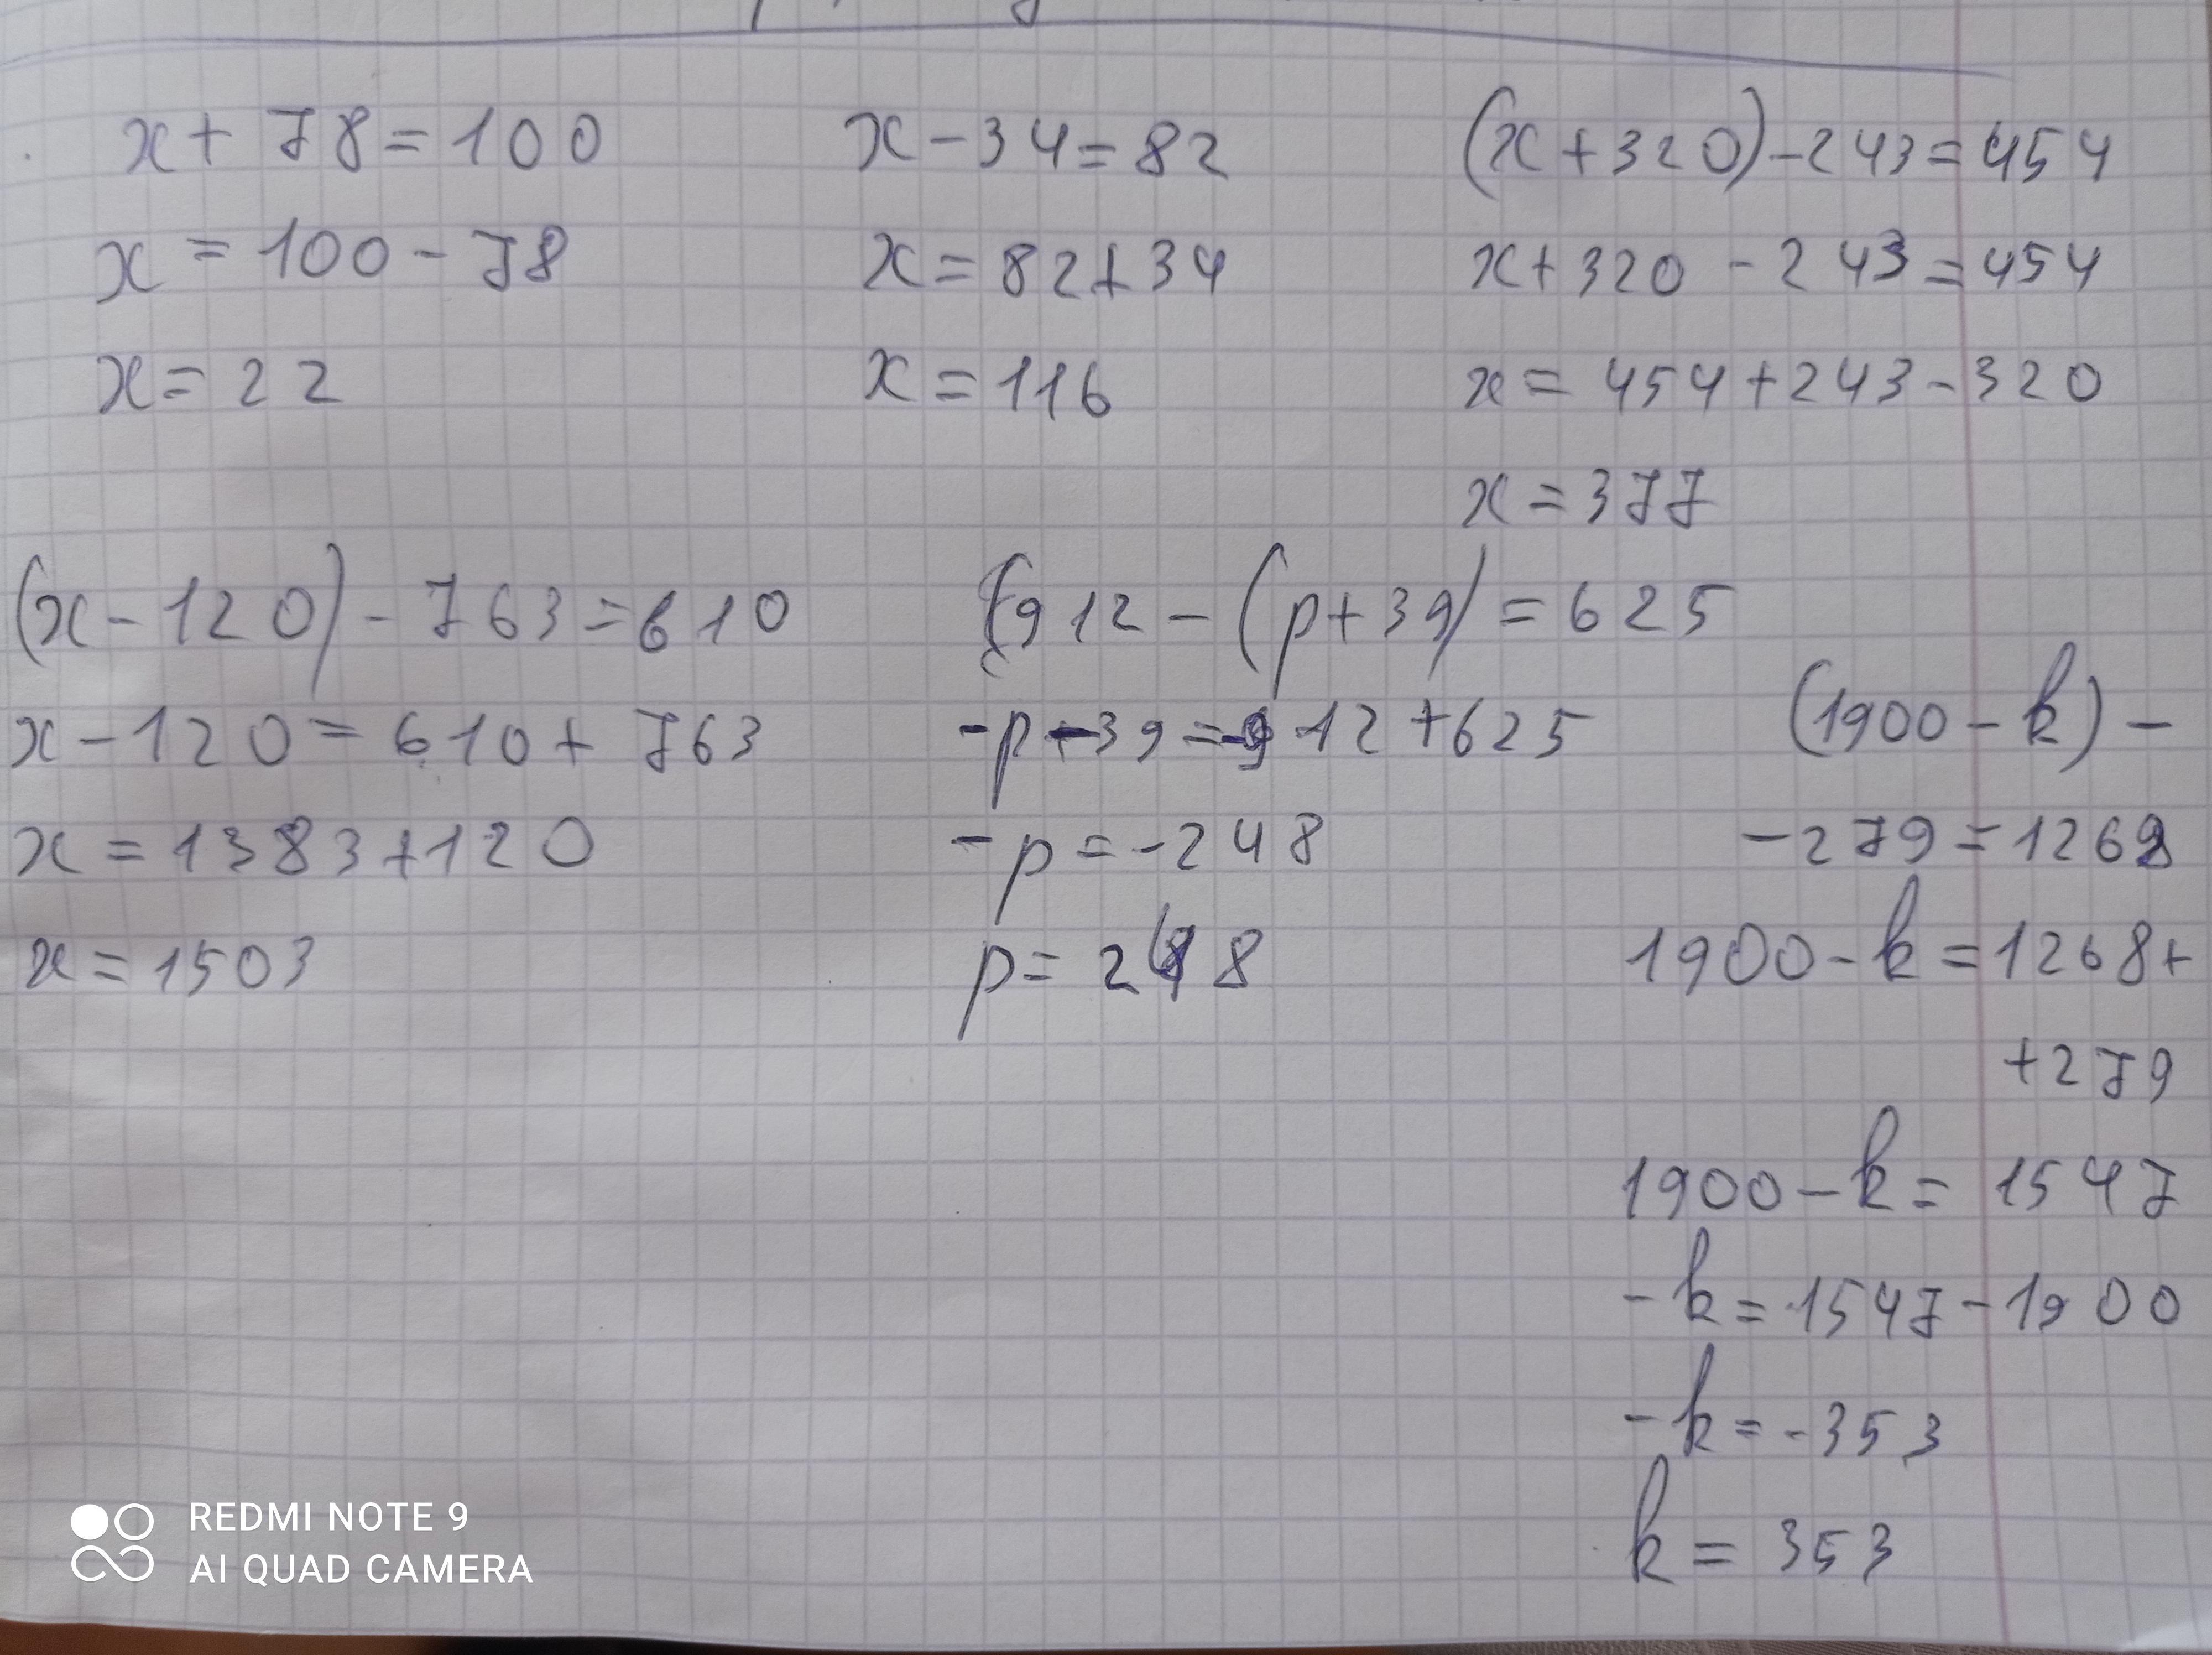 x + 78 = 100
x = 100 - 78
x = 22
x - 34 = 82
x = 82 + 34
x = 116
(x + 320) - 243 = 454
x + 320 - 243 = 454
x = 454 + 243 - 320
x = 377
(x - 120) - 763 = 610
x - 120 = 610 + 763
x = 1383 + 120
x = 1503
912 - (p + 39) = 625
-p - 39 = -912 + 625
-p = -248
p = 248
(1900 - k) -
- 279 = 1268
1900 - k = 1268 +
+ 279
1900 - k = 1547
-k = 1547 - 1900
-k = -353
k = 353
REDMI NOTE 9
AI QUAD CAMERA